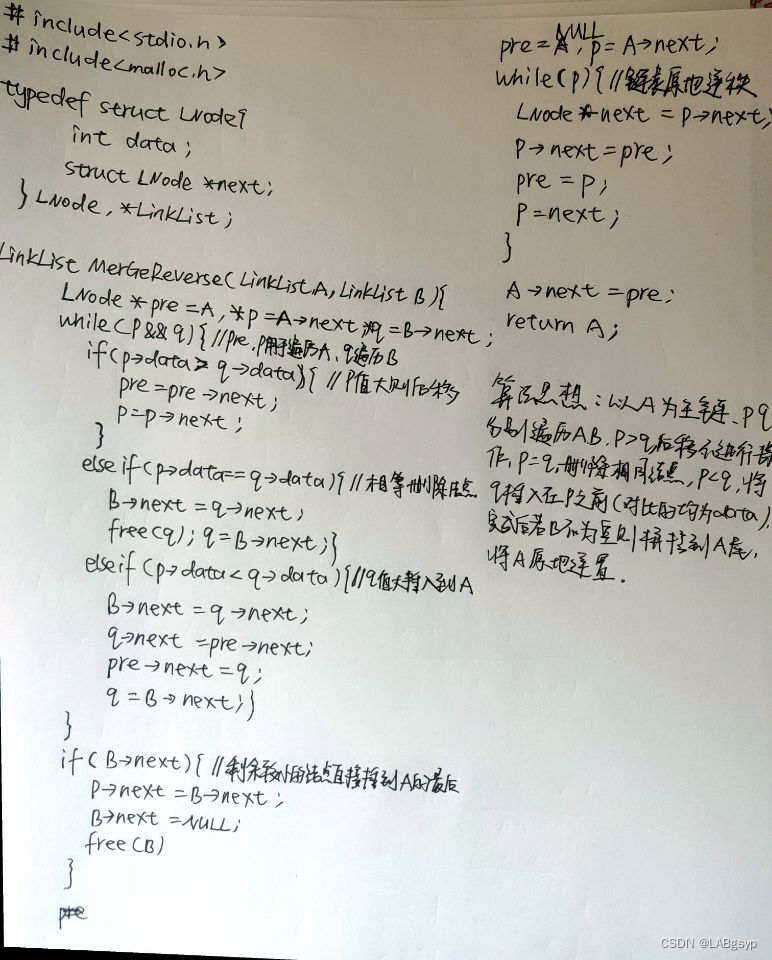 #include<stdio.h>
#include<malloc.h>
typedef struct LNode{
int data;
struct LNode *next;
} LNode, *LinkList;
LinkList MerGeReverse(LinkList A, LinkList B){
LNode *pre=A, *p=A->next, *q=B->next;
while(p&&q){ //pre,p用于遍历A、q遍历B
if(p->data > q->data){ //p值大则后移
pre=pre->next;
p=p->next;
}
else if(p->data==q->data){ //相等删除结点
B->next=q->next;
free(q); q=B->next;}
else if(p->data<q->data){ //q值大插入到A
B->next=q->next;
q->next=pre->next;
pre->next=q;
q=B->next;}
}
if(B->next){ //剩余较小的结点直接接到A的最后
p->next=B->next;
B->next=NULL;
free(B)
}
pre=NULL, p=A->next;
while(p){ //链表原地逆秩
LNode *next=p->next;
p->next=pre;
pre=p;
p=next;
}
A->next=pre;
return A;
算法思想：以A为主链、p q
分别遍历AB, p>q,后移不进行操
作, p=q, 删除相同结点, p<q, 将
q插入在p之前(对比的均为data),
完成后若B不为空则拼接到A尾,
将A原地逆置.
CSDN @LABgsyp